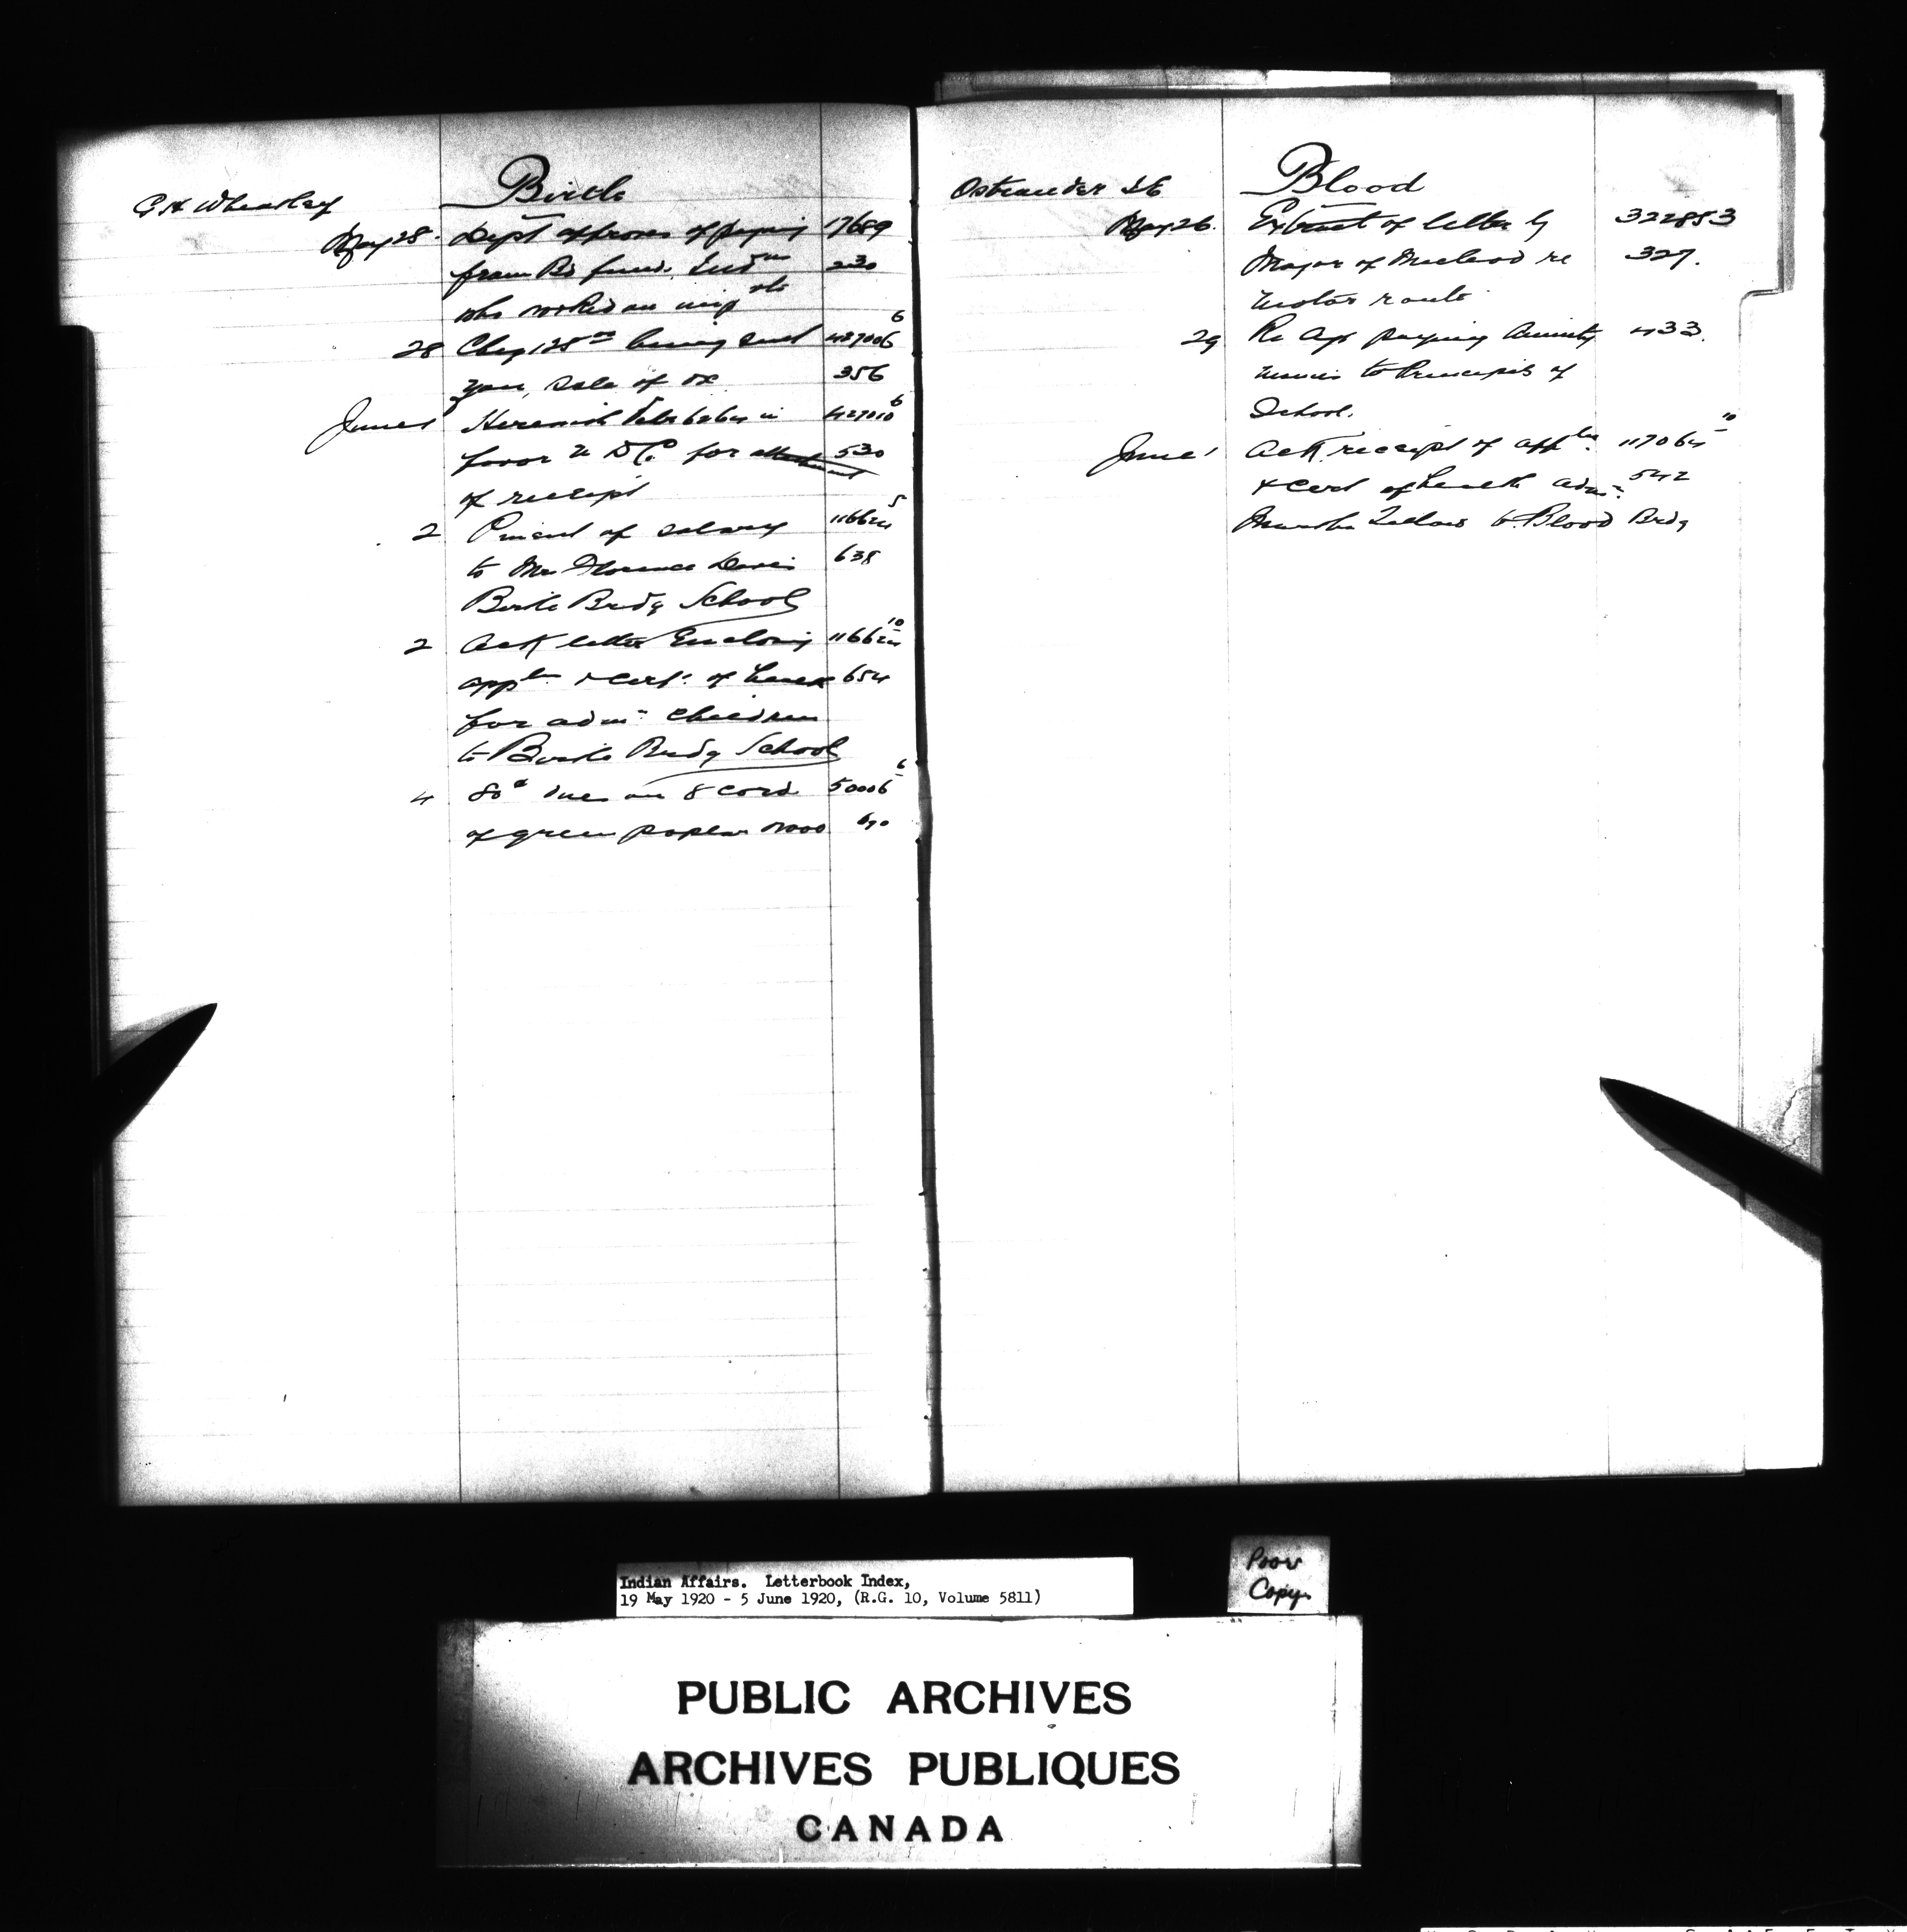 G H Wheatley
Birtle
May 28. Dept approves of paying 17689
from Bd fund. Ind^ns 230
who worked on
28 Cheq 128 being sent 427006 6
you, sale of ox 356
June 1 Herewith 427010 6
favor D.C. for 530
of receipt
2 P'ment of salary 116624 5
to Mrs Florence Davis 638
Birtle Brdg School
2 Ack letter Enclosing 116624 10
appl^n & Cert. of health 654
for adm^n children
to Birtle Brdg School
4 80¢ dues on 8 cord 50006 6
of green poplar wood 690
Ostrander
Blood
May 26. Extract of letter by 322853
Mayor of Macleod re 327.
motor route
29 Re Agt paying Annuity 433.
monies to Principals of
School.
June 1 Ack. receipt of appl^n 117064 10
& Cert of health adm^n 542
to Blood Brdg
Indian Affairs. Letterbook Index,
19 May 1920 - 5 June 1920, (R.G. 10, Volume 5811)
Poor
Copy.
PUBLIC ARCHIVES
ARCHIVES PUBLIQUES
CANADA